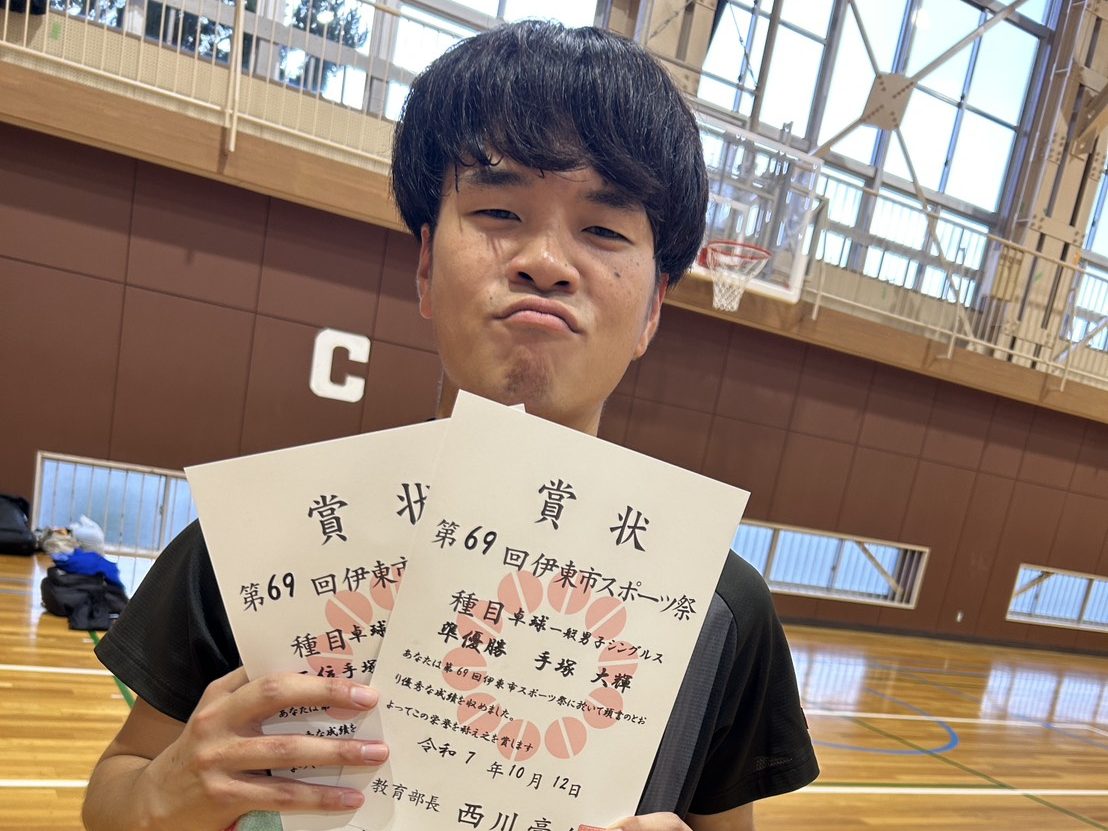 C
賞状
第69回伊東市
種目卓球
手塚
あなたは第
な成績を
賞状
第69回伊東市スポーツ祭
種目卓球一般男子シングルス
準優勝 手塚 大輝
あなたは第69回伊東市スポーツ祭に於いて頭書のとお
り優秀な成績を収めました。
よってこの栄誉を称え之を賞します
令和7年10月12日
教育部長 西川